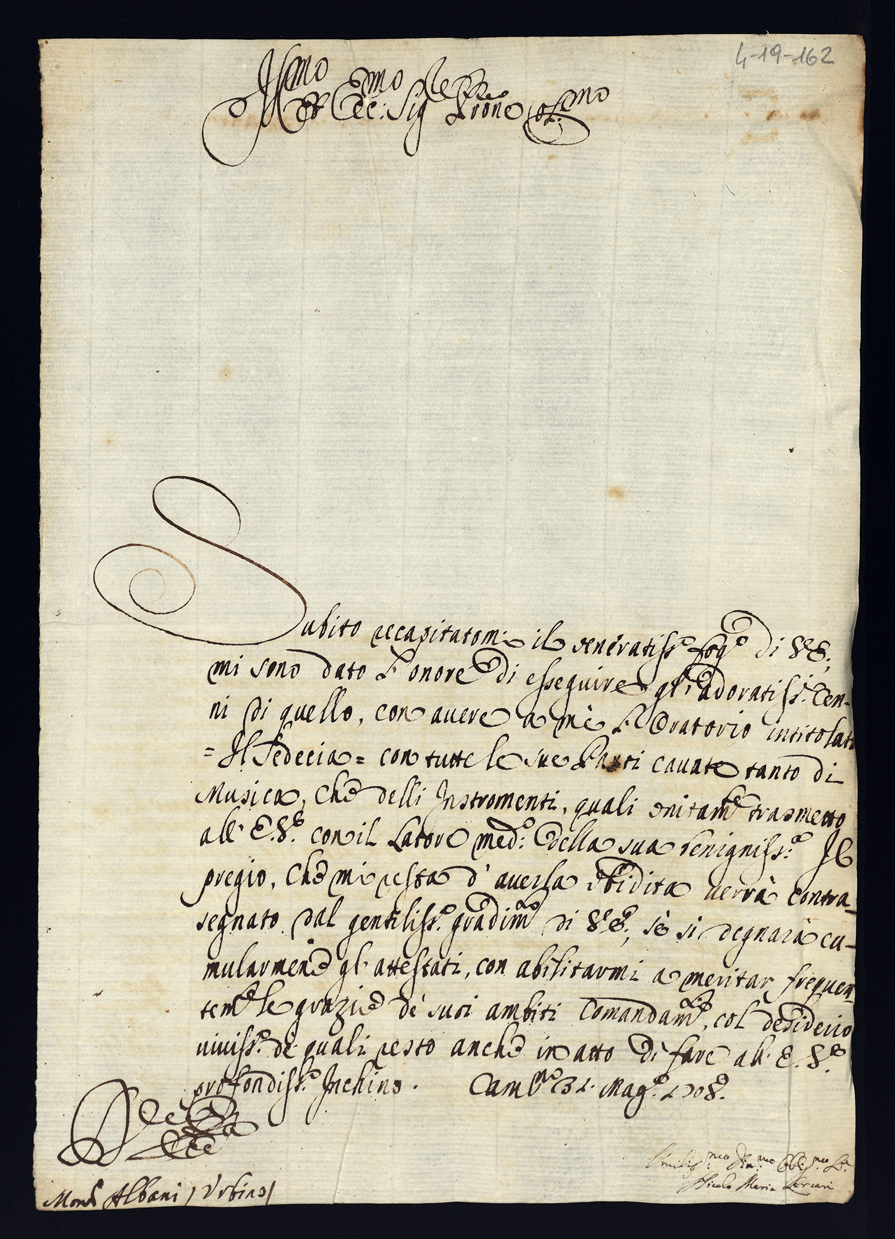 4-19-162
Ill.mo
et Ecc: Sig.r Pron Col.mo
Subito recapitatomi il veneratiss.o fog.o di V.E.,
mi sono dato l'onore di esseguire gl'adoratiss.i Cen-
ni di quello, con avere a me l'Oratorio intitolato
= Il Sedecia = con tutte le sue Parti cavate tanto di
Musica, che delli Instromenti, quali unitam.te trasmetto
all' E.V. con il Latore med.o della sua benigniss.a Il
pregio, che mi resta d'averla obidita verrà contra-
segnato dal gentiliss.o gradim.to di V.E., se si degnarà cu-
mularmene gl'attestati, con abilitarmi a meritar frequen-
tem.te le grazie de suoi ambiti Comandam.ti, col desiderio
viviss.o de quali resto anche in atto di fare all' E.V.
profondiss.o Inchino. Cam.no 31. Mag.o 1708.
Di V.E.
Mons.r Albani / Urbino /
Umiliss.mo Dev.mo Obblig.mo S.re
Nicolo Maria Lercari